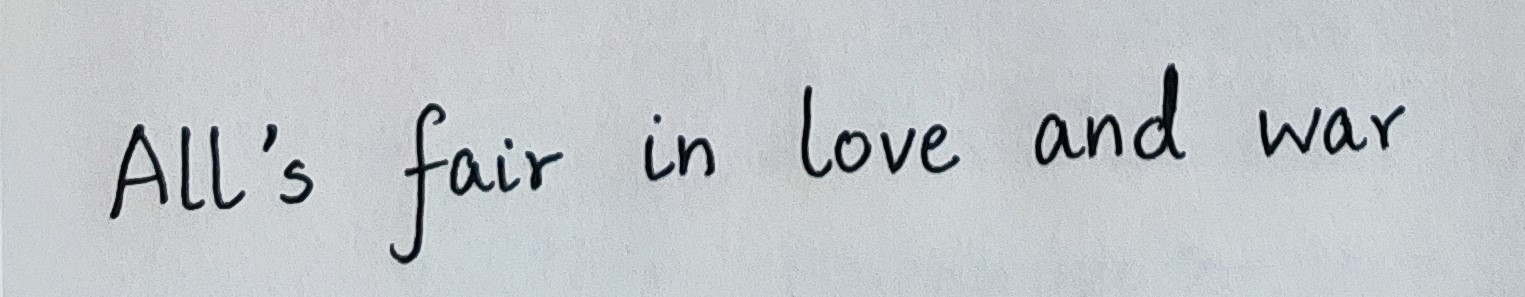 All's fair in love and war